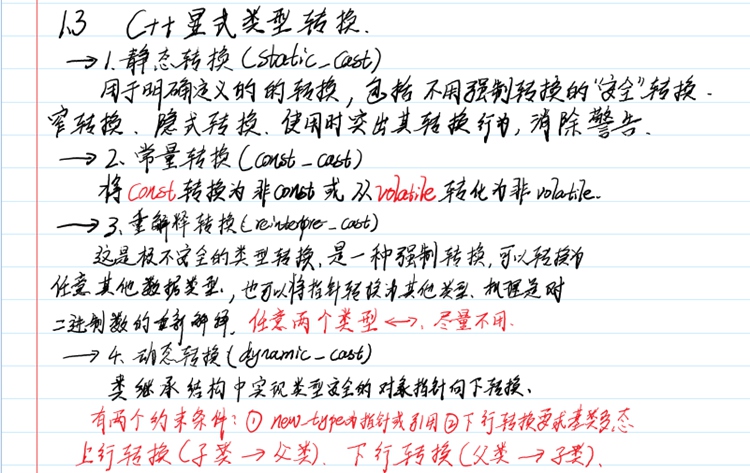 1.3 C++显式类型转换.
→1.静态转换(static_cast)
用于明确定义的的转换,包括不用强制转换的"安全"转换.
窄转换、隐式转换.使用时突出其转换行为,消除警告.
→2.常量转换(const_cast)
将const转换为非const或从volatile转化为非volatile.
→3.重解释转换(reinterpre_cast)
这是极不安全的类型转换,是一种强制转换,可以转换为
任意其他数据类型,也可以将指针转换为其他类型.机理是对
二进制数的重新解释.任意两个类型↔.尽量不用.
→4.动态转换(dynamic_cast)
类继承结构中实现类型安全的对象指针向下转换.
有两个约束条件:①new_type为指针或引用②下行转换要求基类多态
上行转换(子类→父类).下行转换(父类→子类)